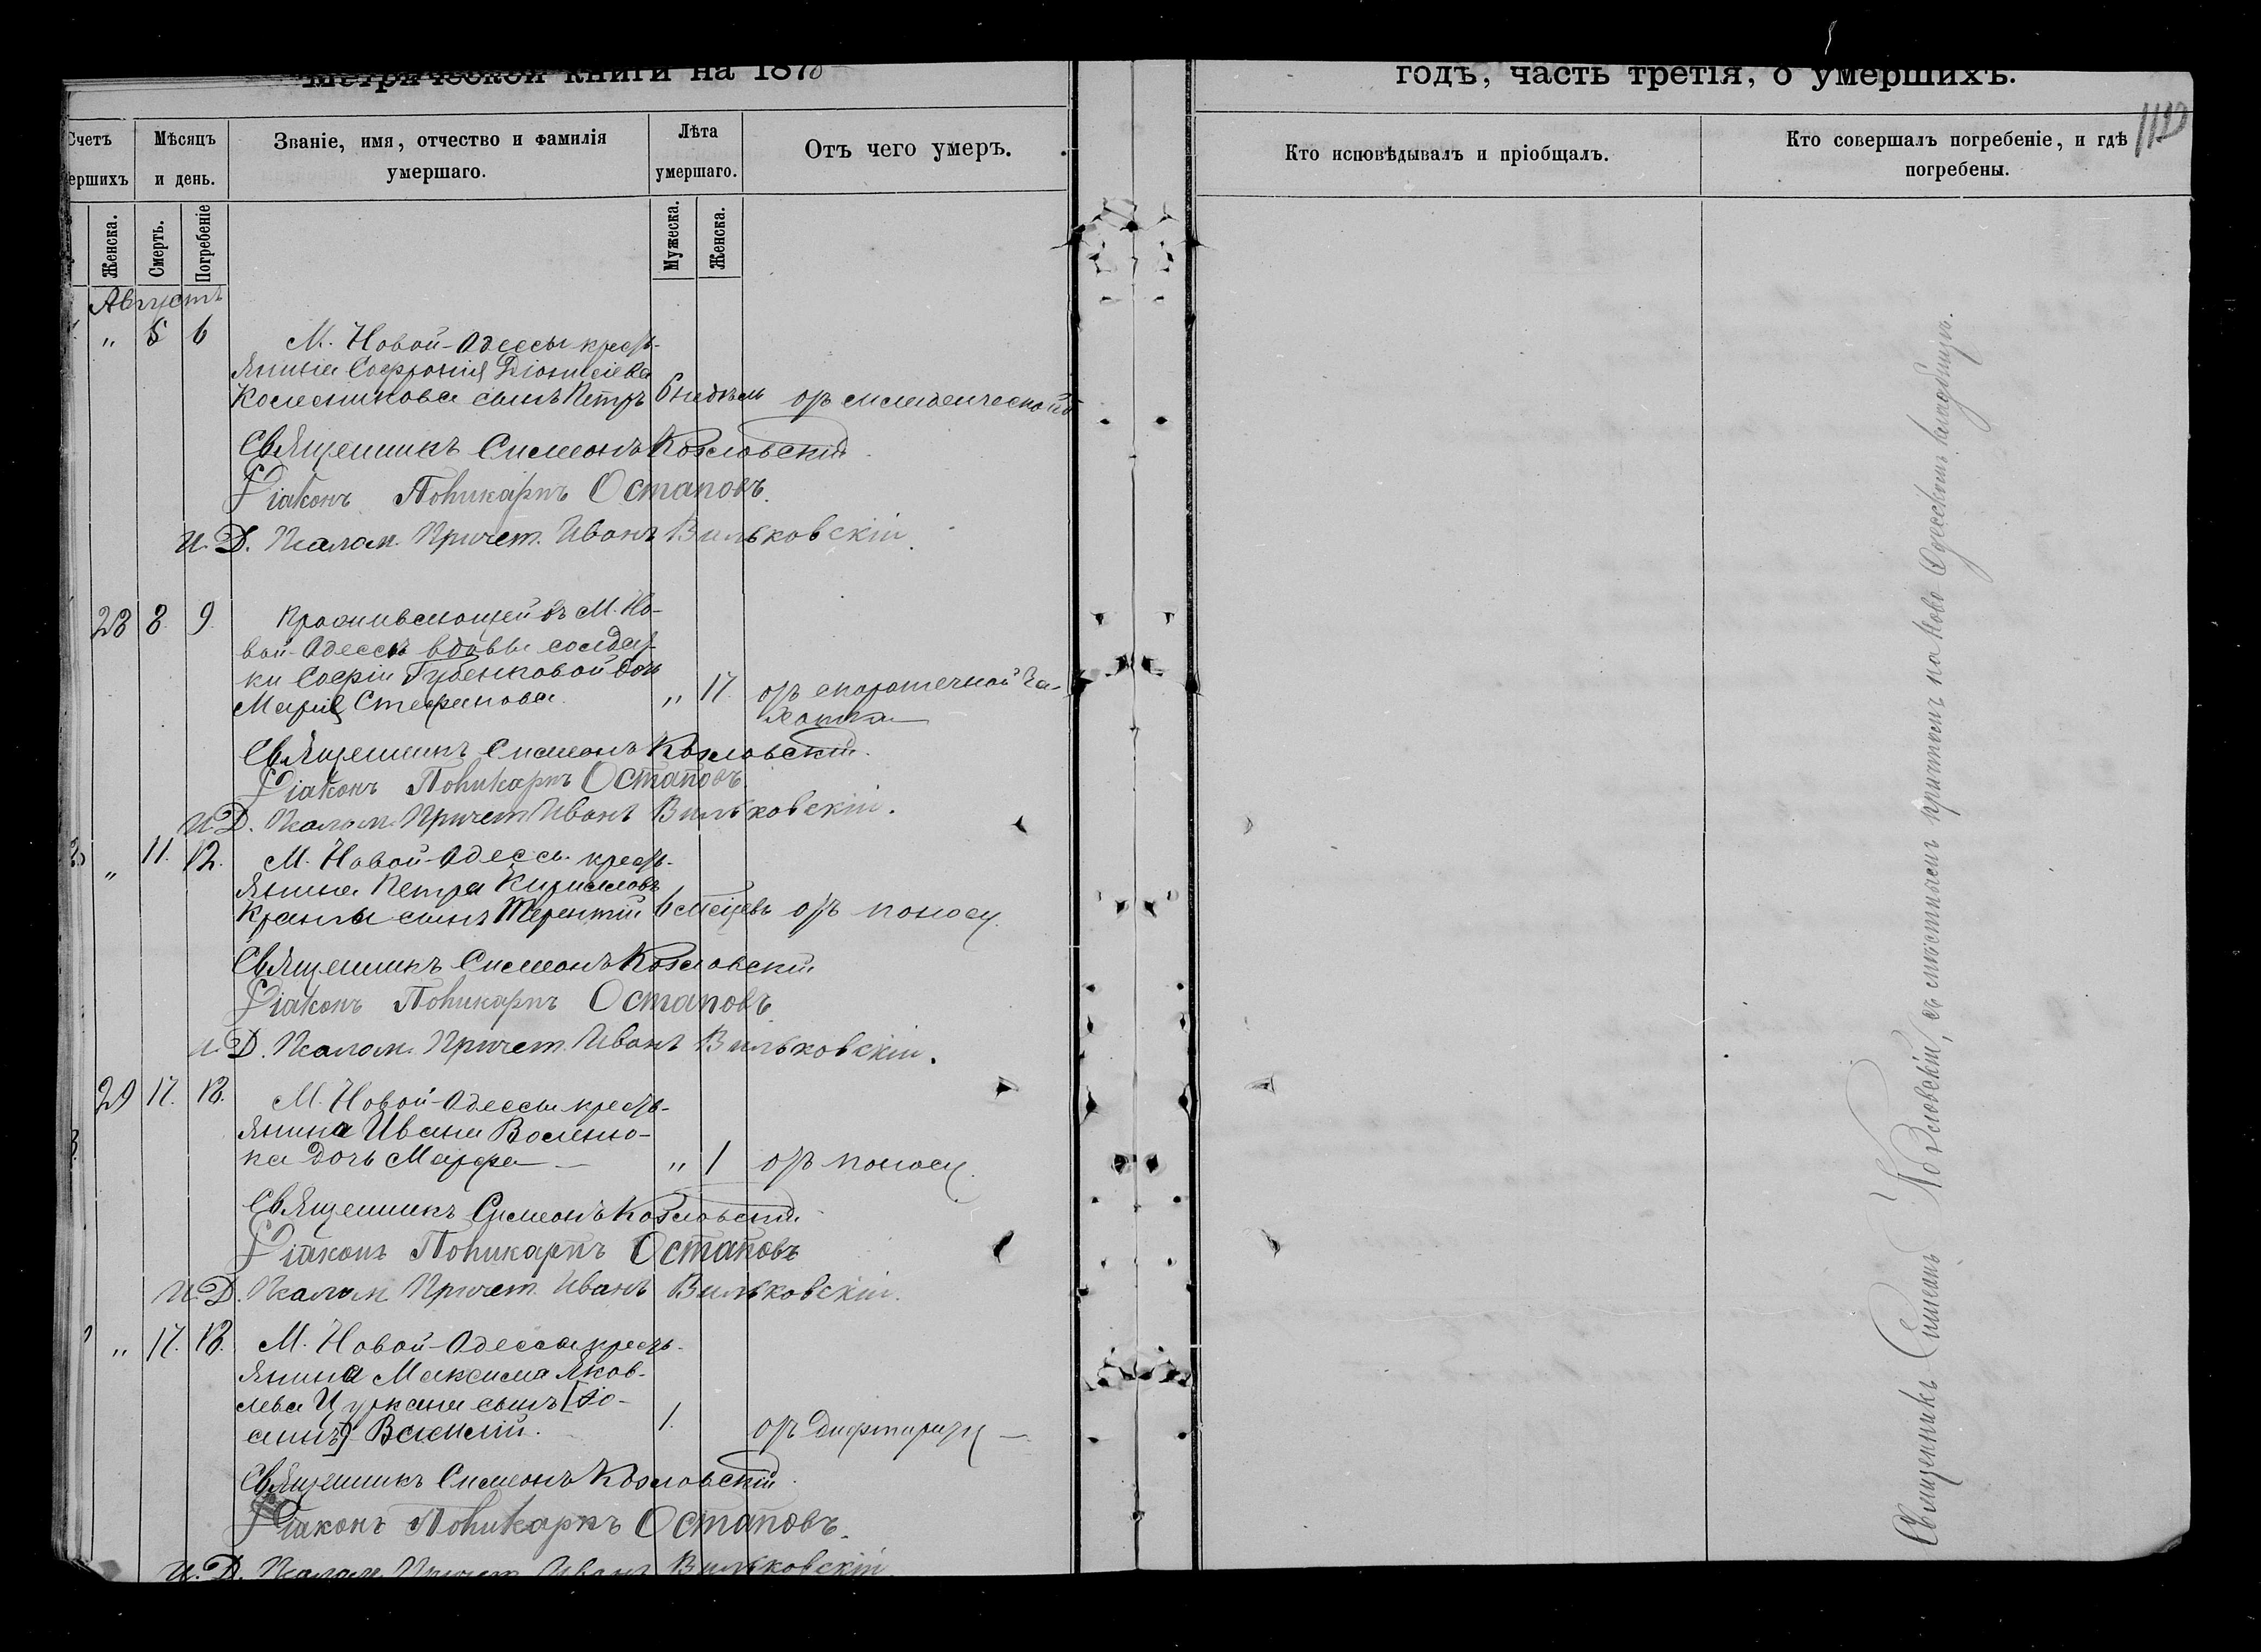 Метрической книги на 1878
годъ, часть третія, о умершихъ.
Счетъ
ершихъ
Мѣсяцъ
и день.
Званіе, имя, отчество и фамилія
умершаго.
Лѣта
умершаго.
Отъ чего умеръ.
Кто исповѣдывалъ и пріобщалъ.
Кто совершалъ погребеніе, и гдѣ
погребены.
Женска.
Смерть.
Погребеніе
Мужеска.
Женска.
Августъ
" 5 6 М. Новой-Одессы кресть-
янина Софронія Діонисіева
Колесникова сынъ Петръ 6 недѣль отъ младенческой
Священникъ Симеонъ Козловскій
Діаконъ Поликарпъ Остаповъ.
И. Д. Псалом. Причет. Иванъ Вильковскій.
28 8 9 Проживающей въ М. Но-
вой-Одессѣ вдовы солдат-
ки Софіи Губенковой дочь
Марія Стефанова. " 17 отъ скоротечной ча-
хотки
Священникъ Симеонъ Козловскій.
Діаконъ Поликарпъ Остаповъ.
И. Д. Псалом. Причет. Иванъ Вильковскій.
" 11. 12. М. Новой-Одессы кресть-
янина Петра Кириллова
сынъ Терентій 6 месецевъ отъ поносу.
Священникъ Симеонъ Козловскій
Діаконъ Поликарпъ Остаповъ.
И. Д. Псалом. Причет. Иванъ Вильковскій.
29 17. 18. М. Новой-Одессы кресть-
янина Ивана
ка дочь Марфа — " 1 отъ поносу.
Священникъ Симеонъ Козловскій
Діаконъ Поликарпъ Остаповъ
И. Д. Псалом. Причет. Иванъ Вильковскій.
" 17. 18. М. Новой-Одессы кресть-
янина Максима Яков-
лева Цуркана сынъ
Василій. 1. отъ дифтириту —
Священникъ Симеонъ Козловскій
Діаконъ Поликарпъ Остаповъ.
И. Д. Псалом. Причет. Иванъ Вильковскій
Священникъ Симеонъ Козловскій, съ мѣстнымъ причтомъ на Ново Одесскомъ кладбищѣ.